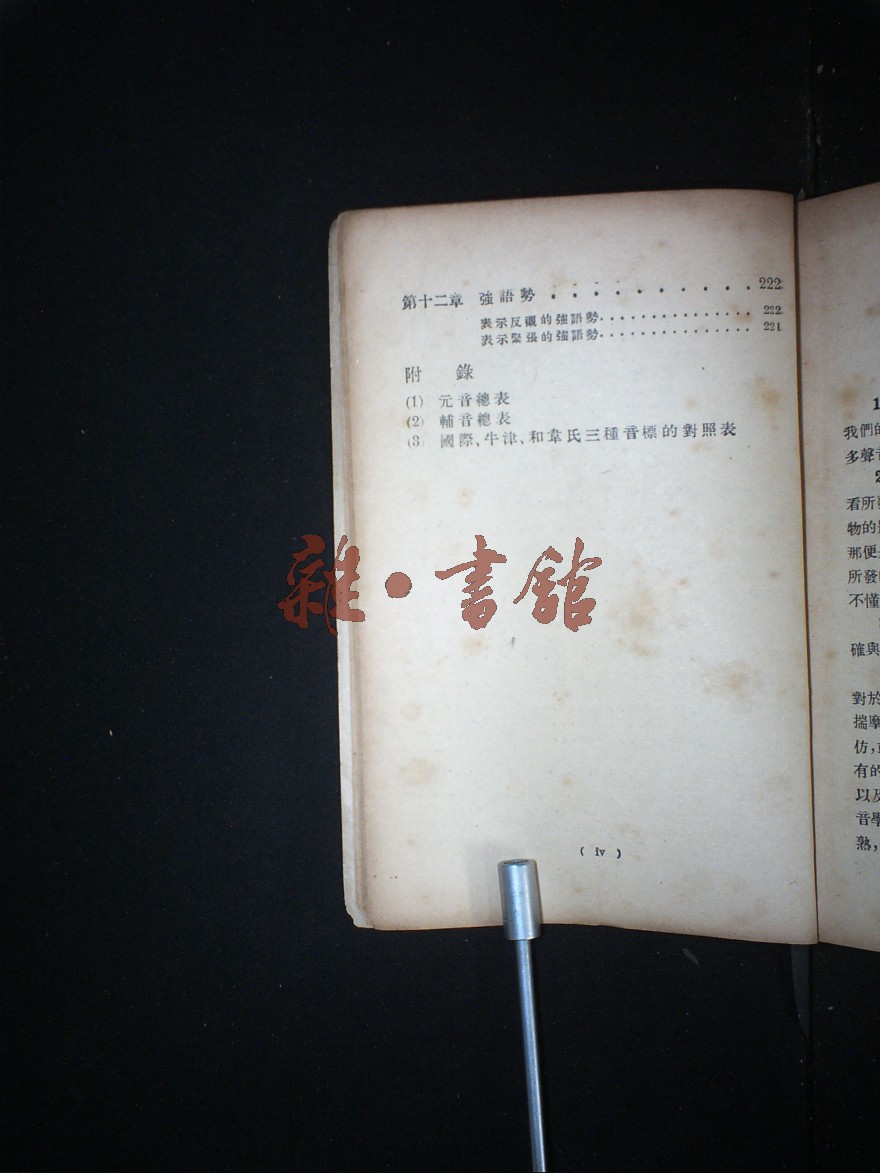 第十二章 強語勢 . . . . . . . . . . . 222
表示反襯的強語勢. . . . . . . . . . . . . . . . 222
表示緊張的強語勢. . . . . . . . . . . . . . . . 224
附 錄
(1) 元音總表
(2) 輔音總表
(3 國際、牛津、和韋氏三種音標的對照表
( iv )
雜·書館
1
我們的
多聲音
2
看所發
物的
那便
所發
不懂
確與
對於
揣摩
仿,
有的
以及
音學
熟,